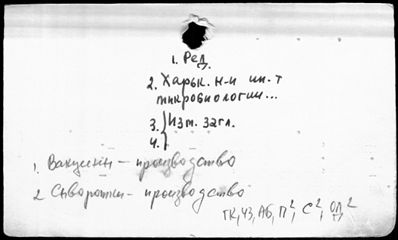 1. Ред.
2. Харьк. н-и ин. т
микробиологии...
3. } Изм. загл.
4.
1. Вакцины - производство
2 Сыворотки - производство
ГК, ЧЗ, АБ, П², С², ОД²